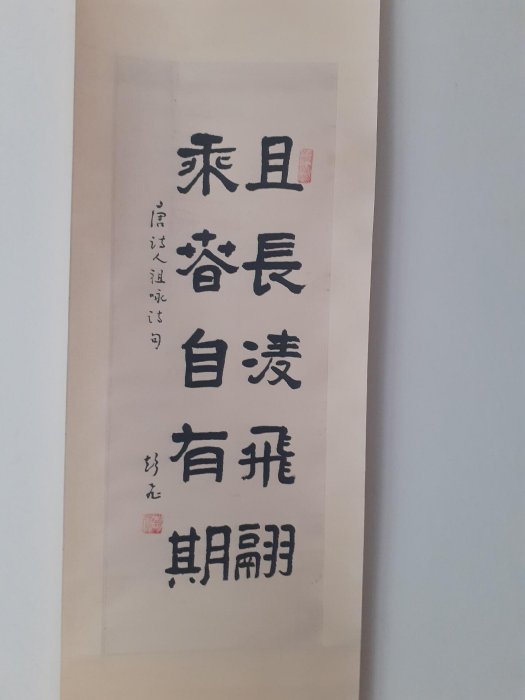 且長凌飛翮
乘春自有期
唐詩人祖咏詩句